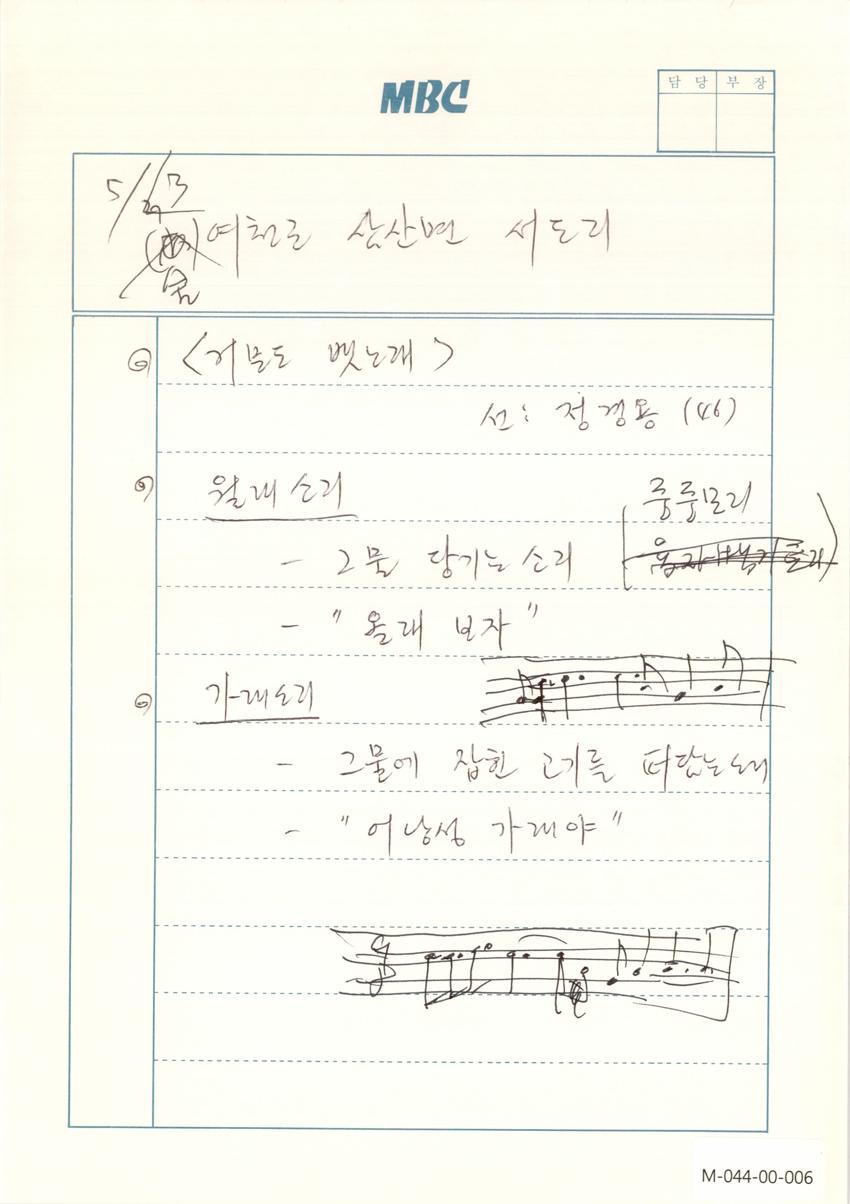 MBC
담 당 부 장
5/
여천군 삼산면 서도리
<거문도 뱃노래>
선: 정경용 (46)
월래소리
중중모리
- 그물 당기는 소리
- "올래 보자"
가래소리
- 그물에 잡힌 고기를 퍼담는소리
- "어낭성 가래야"
M-044-00-006